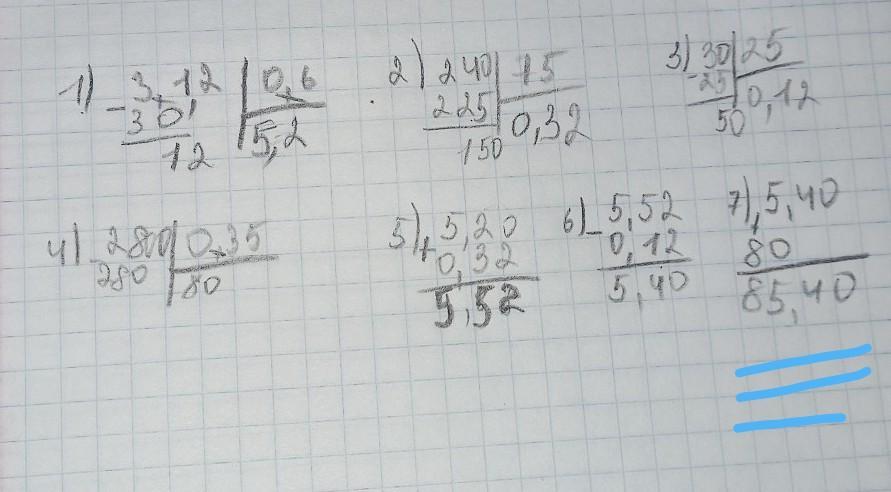 1) 3,12 | 0,6
- 30, | 5,2
12
2) 240 | 15
225 | 0,32
150
3) 30 | 25
-25 | 0,12
50
4) 2800 | 0,35
-280 | 80
5) 5,20
+ 0,32
5,52
6) 5,52
- 0,12
5,40
7) 5,40
+ 80
85,40